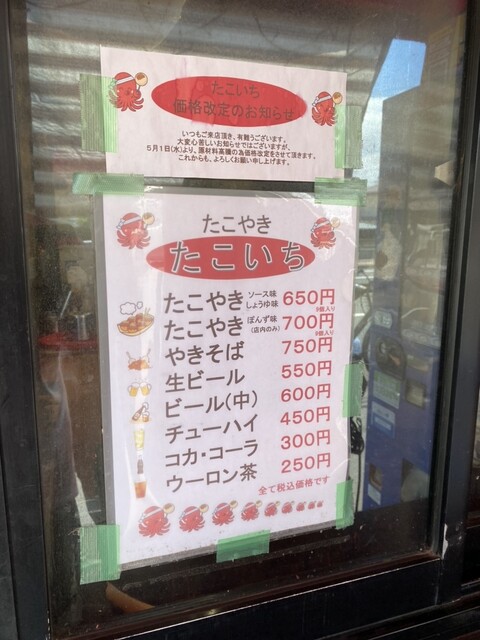 たこいち
価格改定のお知らせ
いつもご来店頂き、有難うございます。
大変心苦しいお知らせではございますが、
5月1日(水)より、原材料高騰の為価格改定をさせて頂きます。
これからも、よろしくお願い申し上げます。
たこやき
たこいち
たこやき ソース味 しょうゆ味 650円 8個入り
たこやき ぽんず味 (店内のみ) 700円 8個入り
やきそば 750円
生ビール 550円
ビール(中) 600円
チューハイ 450円
コカ・コーラ 300円
ウーロン茶 250円
全て税込価格です